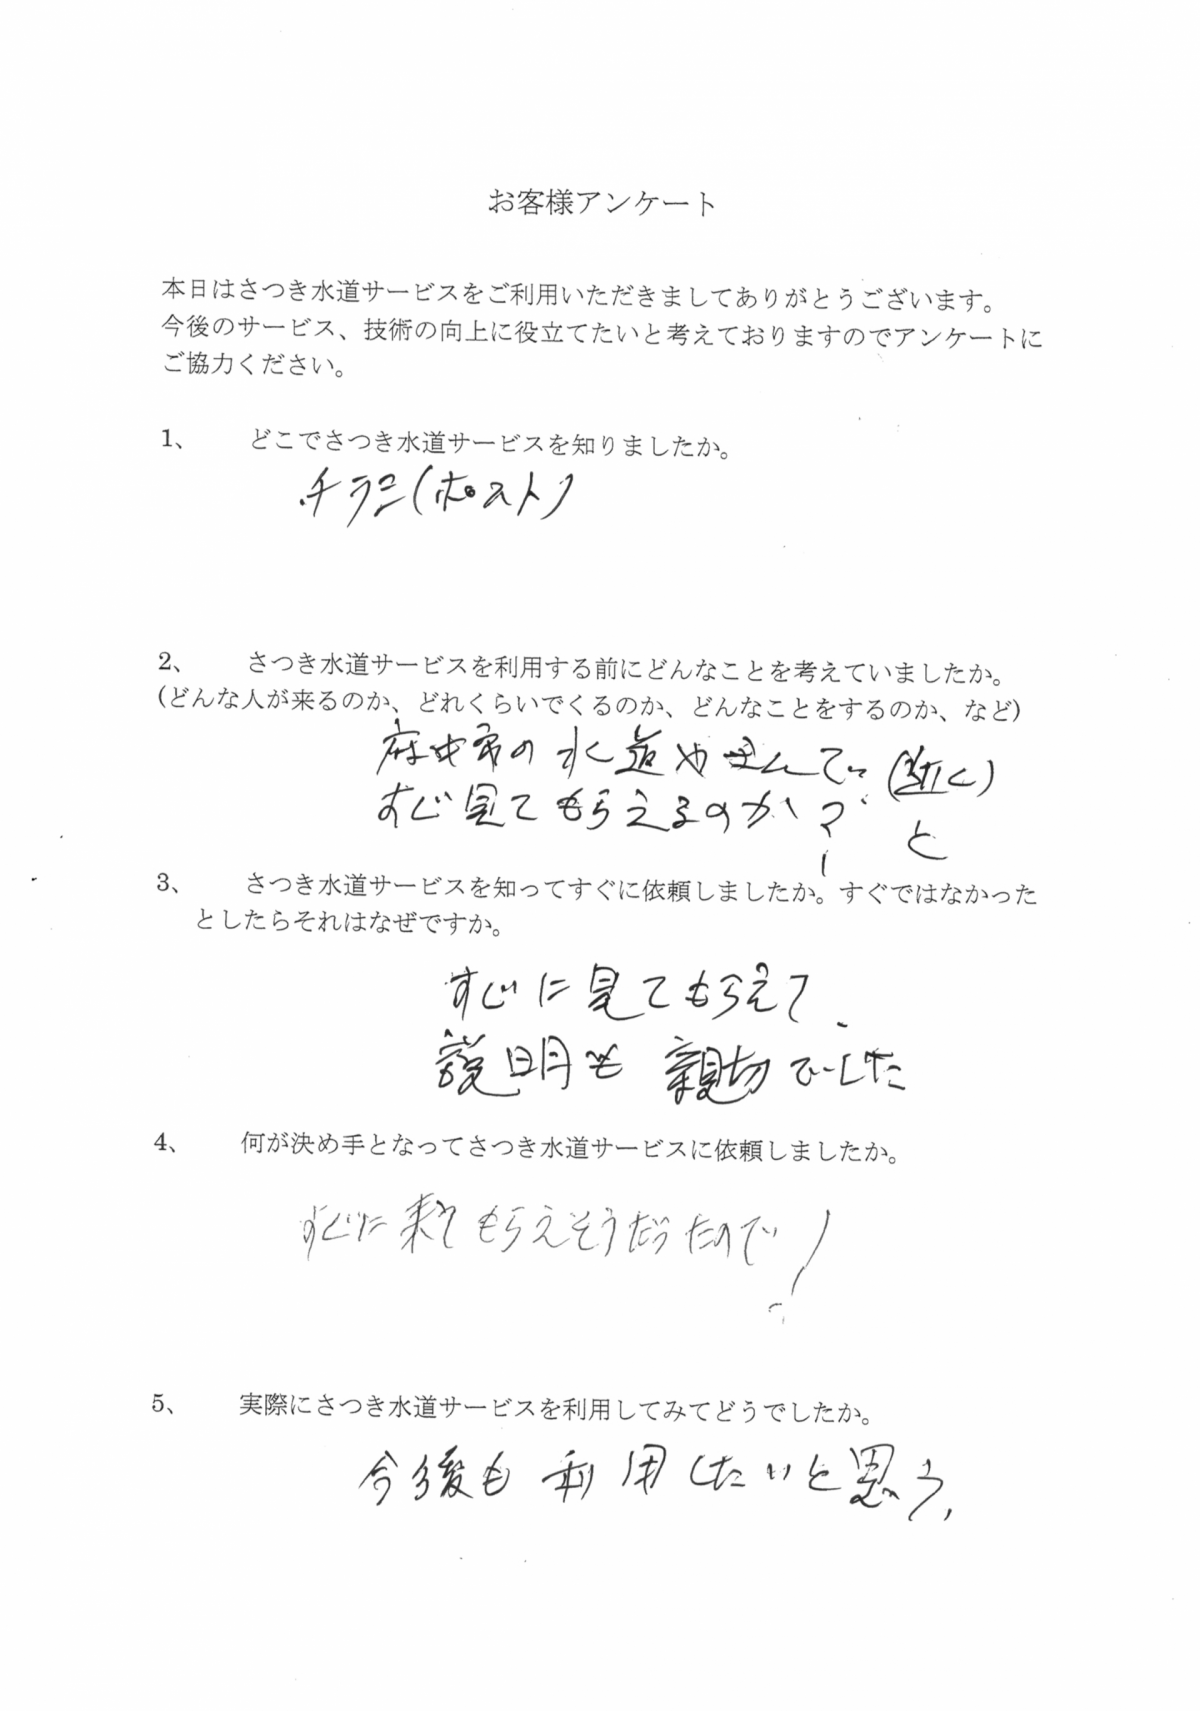 お客様アンケート
本日はさつき水道サービスをご利用いただきましてありがとうございます。
今後のサービス、技術の向上に役立てたいと考えておりますのでアンケートに
ご協力ください。
1、 どこでさつき水道サービスを知りましたか。
チラシ(ポスト)
2、 さつき水道サービスを利用する前にどんなことを考えていましたか。
(どんな人が来るのか、どれくらいでくるのか、どんなことをするのか、など)
府中市の水道やさんで (近く)
すぐ見てもらえるのか? と
3、 さつき水道サービスを知ってすぐに依頼しましたか。すぐではなかった
としたらそれはなぜですか。
すぐに見てもらえて、
説明も親切でした
4、 何が決め手となってさつき水道サービスに依頼しましたか。
すぐに来てもらえそうだったので!
5、 実際にさつき水道サービスを利用してみてどうでしたか。
今後も利用したいと思う、